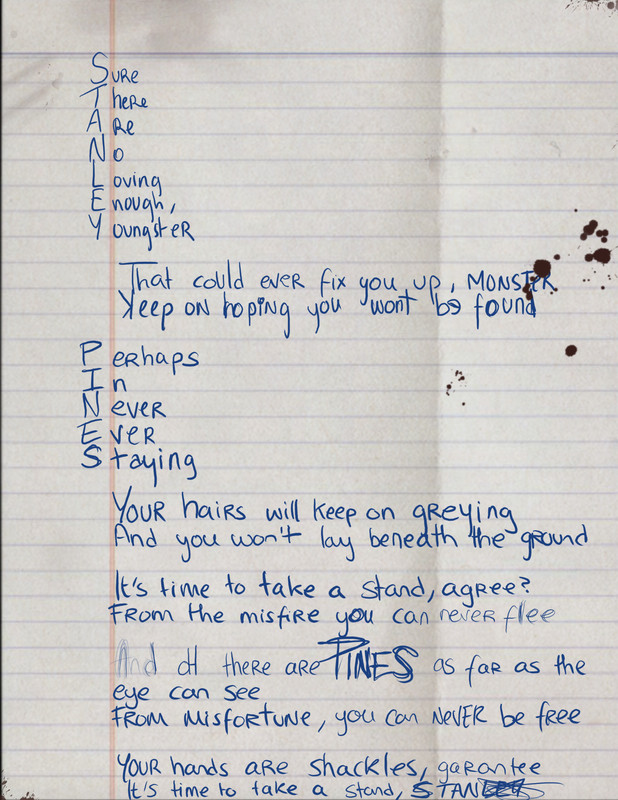 SURE
THERE
ARE
NO
Loving
Enough,
YoungsteR
That could ever fix you up, MONSTER
Keep ON hoping you wont be found
PERHAPS
In
NEVER
EVER
Staying
YOUR hairs will keep on gREying
And you won't lay beneath the ground
It's time to take a stand, agree?
FROM the misfire you can never flee
And oh there are PINES as far as the
eye can see
FROM MisfORTUNE, you can NEVER be free
YOUR hands are shackles, garantee
It's time to take a stand, STAN